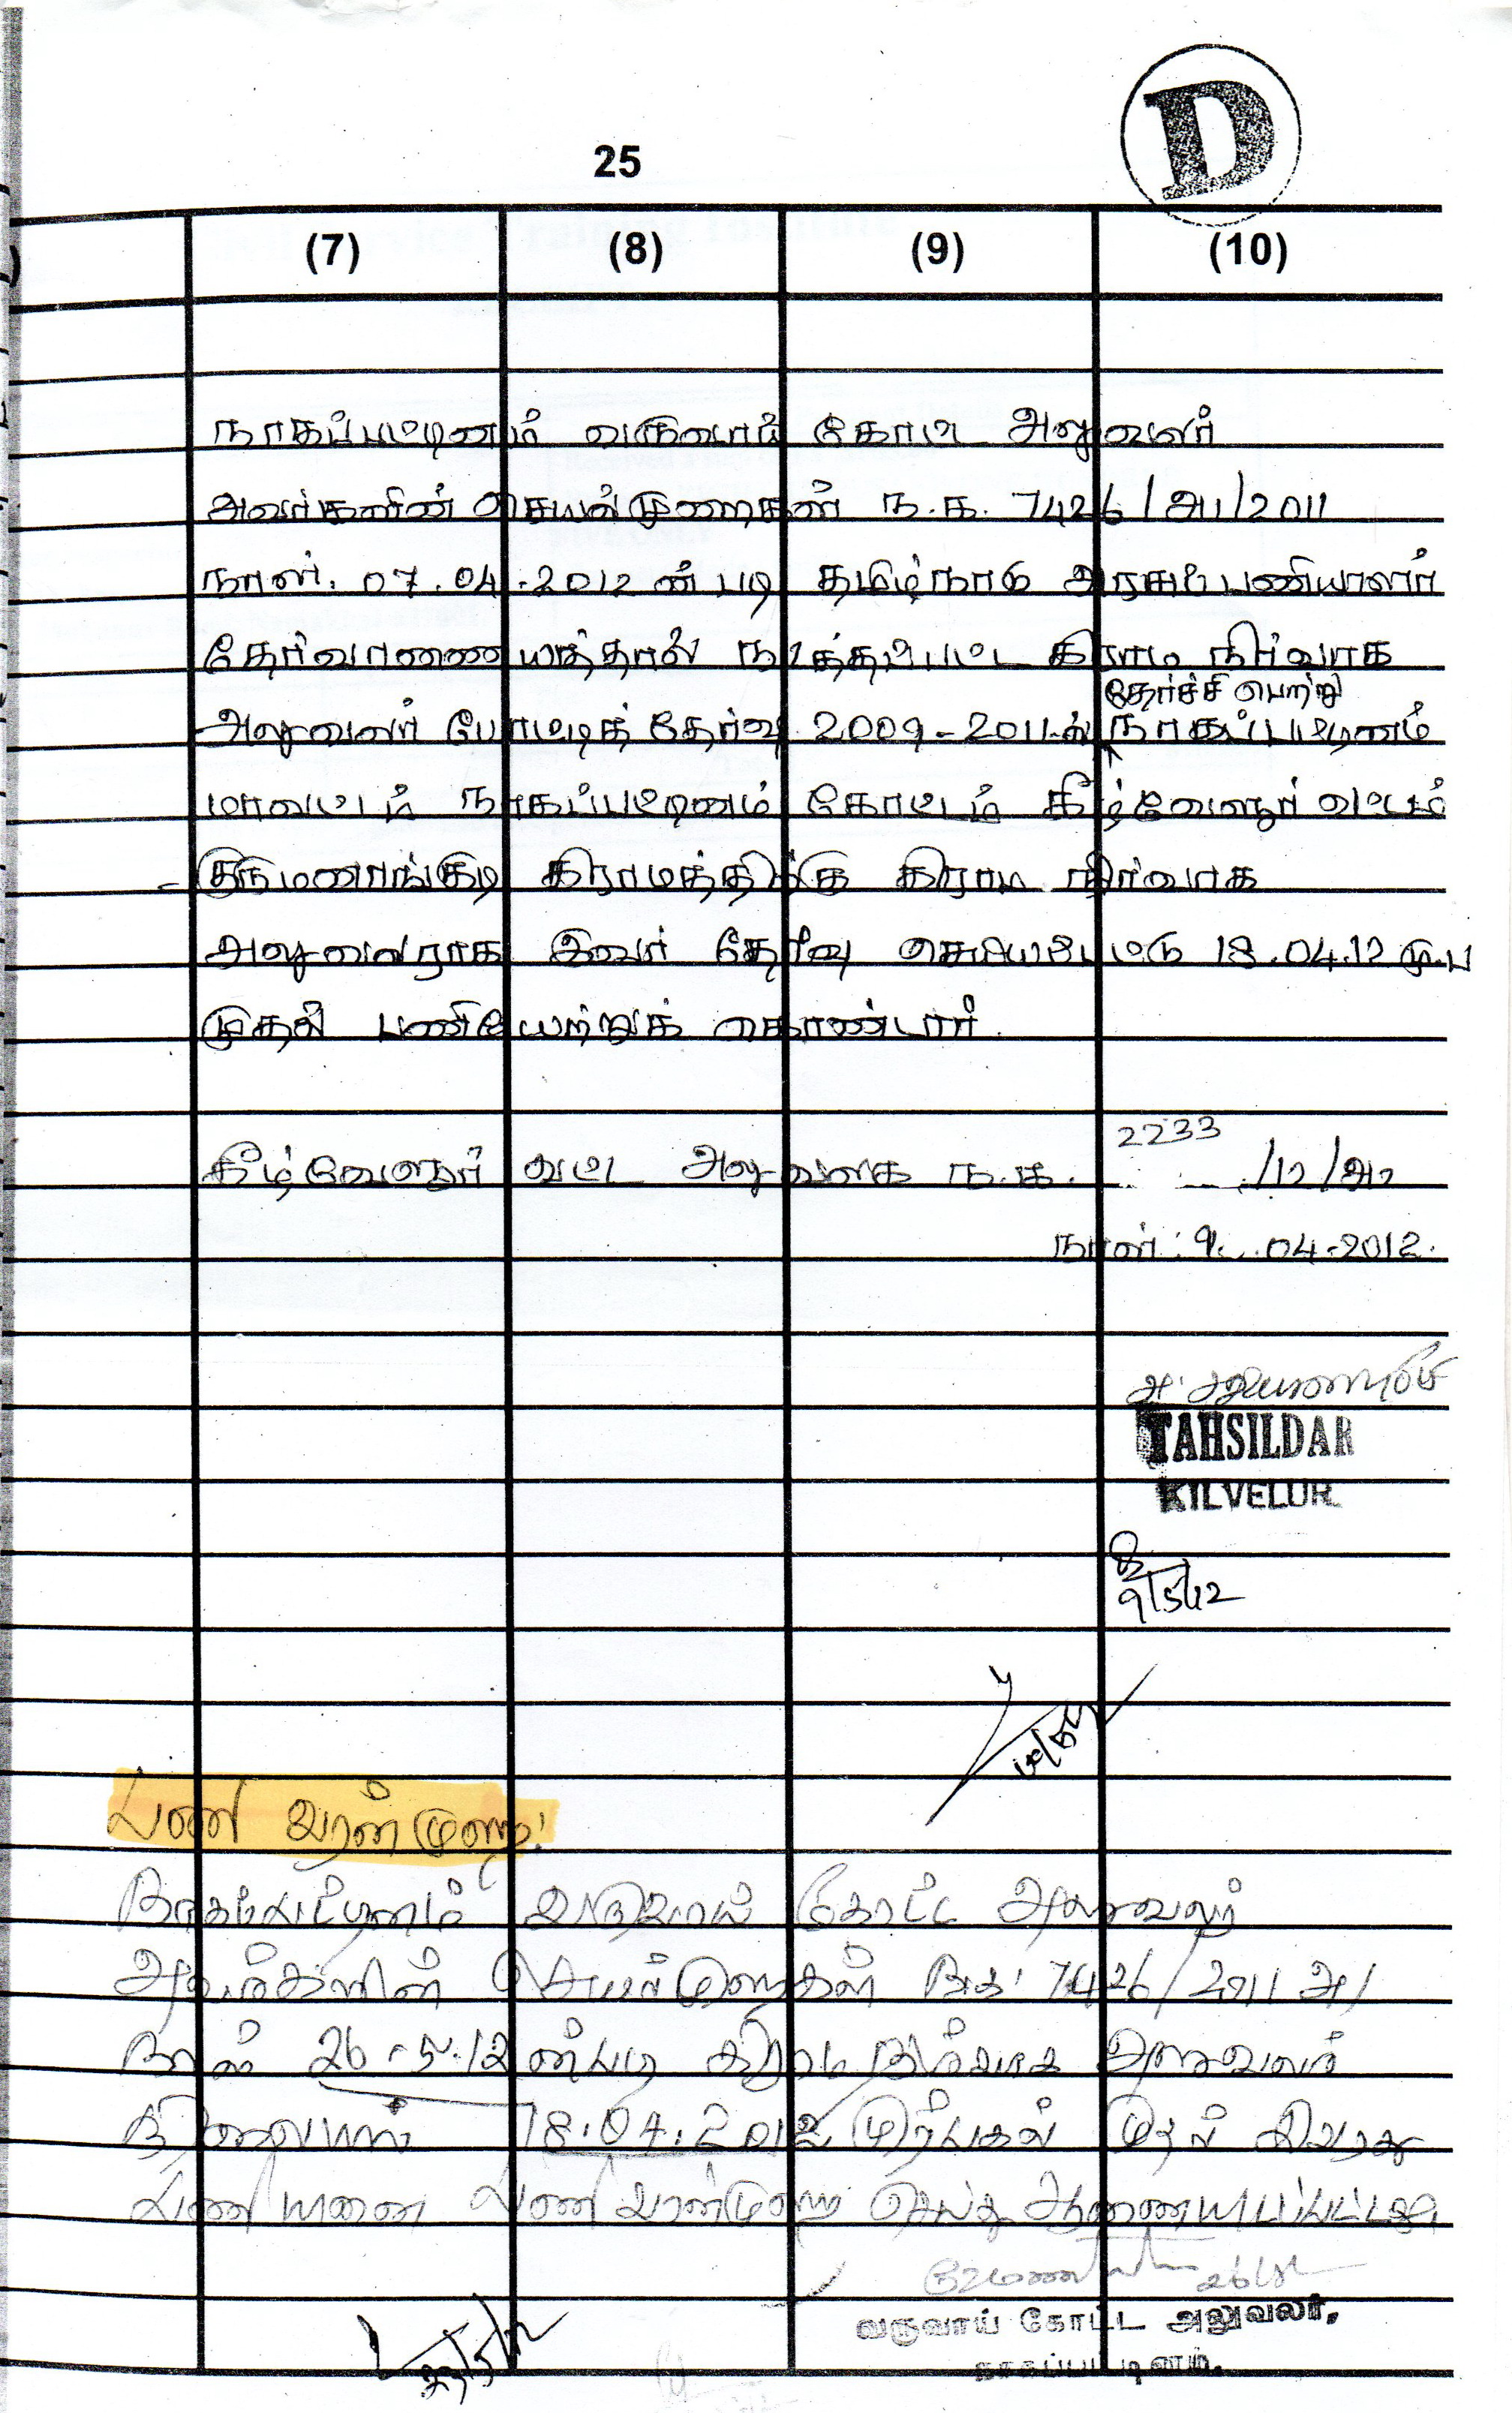 D
25
(7) (8) (9) (10)
நாகப்பட்டினம் வருவாய் கோட்ட அலுவலர்
அவர்களின் செயல்முறைகள் ந.க. 7426/அ1/2011
நாள். 07.04.2012 ன் படி தமிழ்நாடு அரசுப்பணியாளர்
தேர்வாணையத்தால் நடத்தப்பட்ட கிராம நிர்வாக
தேர்ச்சி பெற்று
அலுவலர் போட்டித் தேர்வு 2009-2011-ல் நாகப்பட்டினம்
மாவட்டம் நாகப்பட்டினம் கோட்டம் கீழ்வேளூர் வட்டம்
திருமணங்குடி கிராமத்திற்கு கிராம நிர்வாக
அலுவலராக இவர் தேர்வு செய்யப்பட்டு 18.04.12 மு.ப
முதல் பணியேற்றுக் கொண்டார்.
2233
கீழ்வேளூர் வட்ட அலுவலக ந.க. /12/அ2
நாள்: 04-2012.
TAHSILDAR
KILVELUR.
9/5/12
பணி வரன்முறை:
நாகப்பட்டினம் வருவாய் கோட்ட அலுவலர்
அவர்களின் செயல்முறைகள் ந.க. 7426/2011 அ1
நாள் 26-5-12 ன்படி கிராம நிர்வாக அலுவலர்
நிலையில் 18.04.2012 முற்பகல் முதல் இவரது
பணியினை பணி வரன்முறை செய்து ஆணையிடப்பட்டது
வருவாய் கோட்ட அலுவலர்,
நாகப்பட்டினம்.